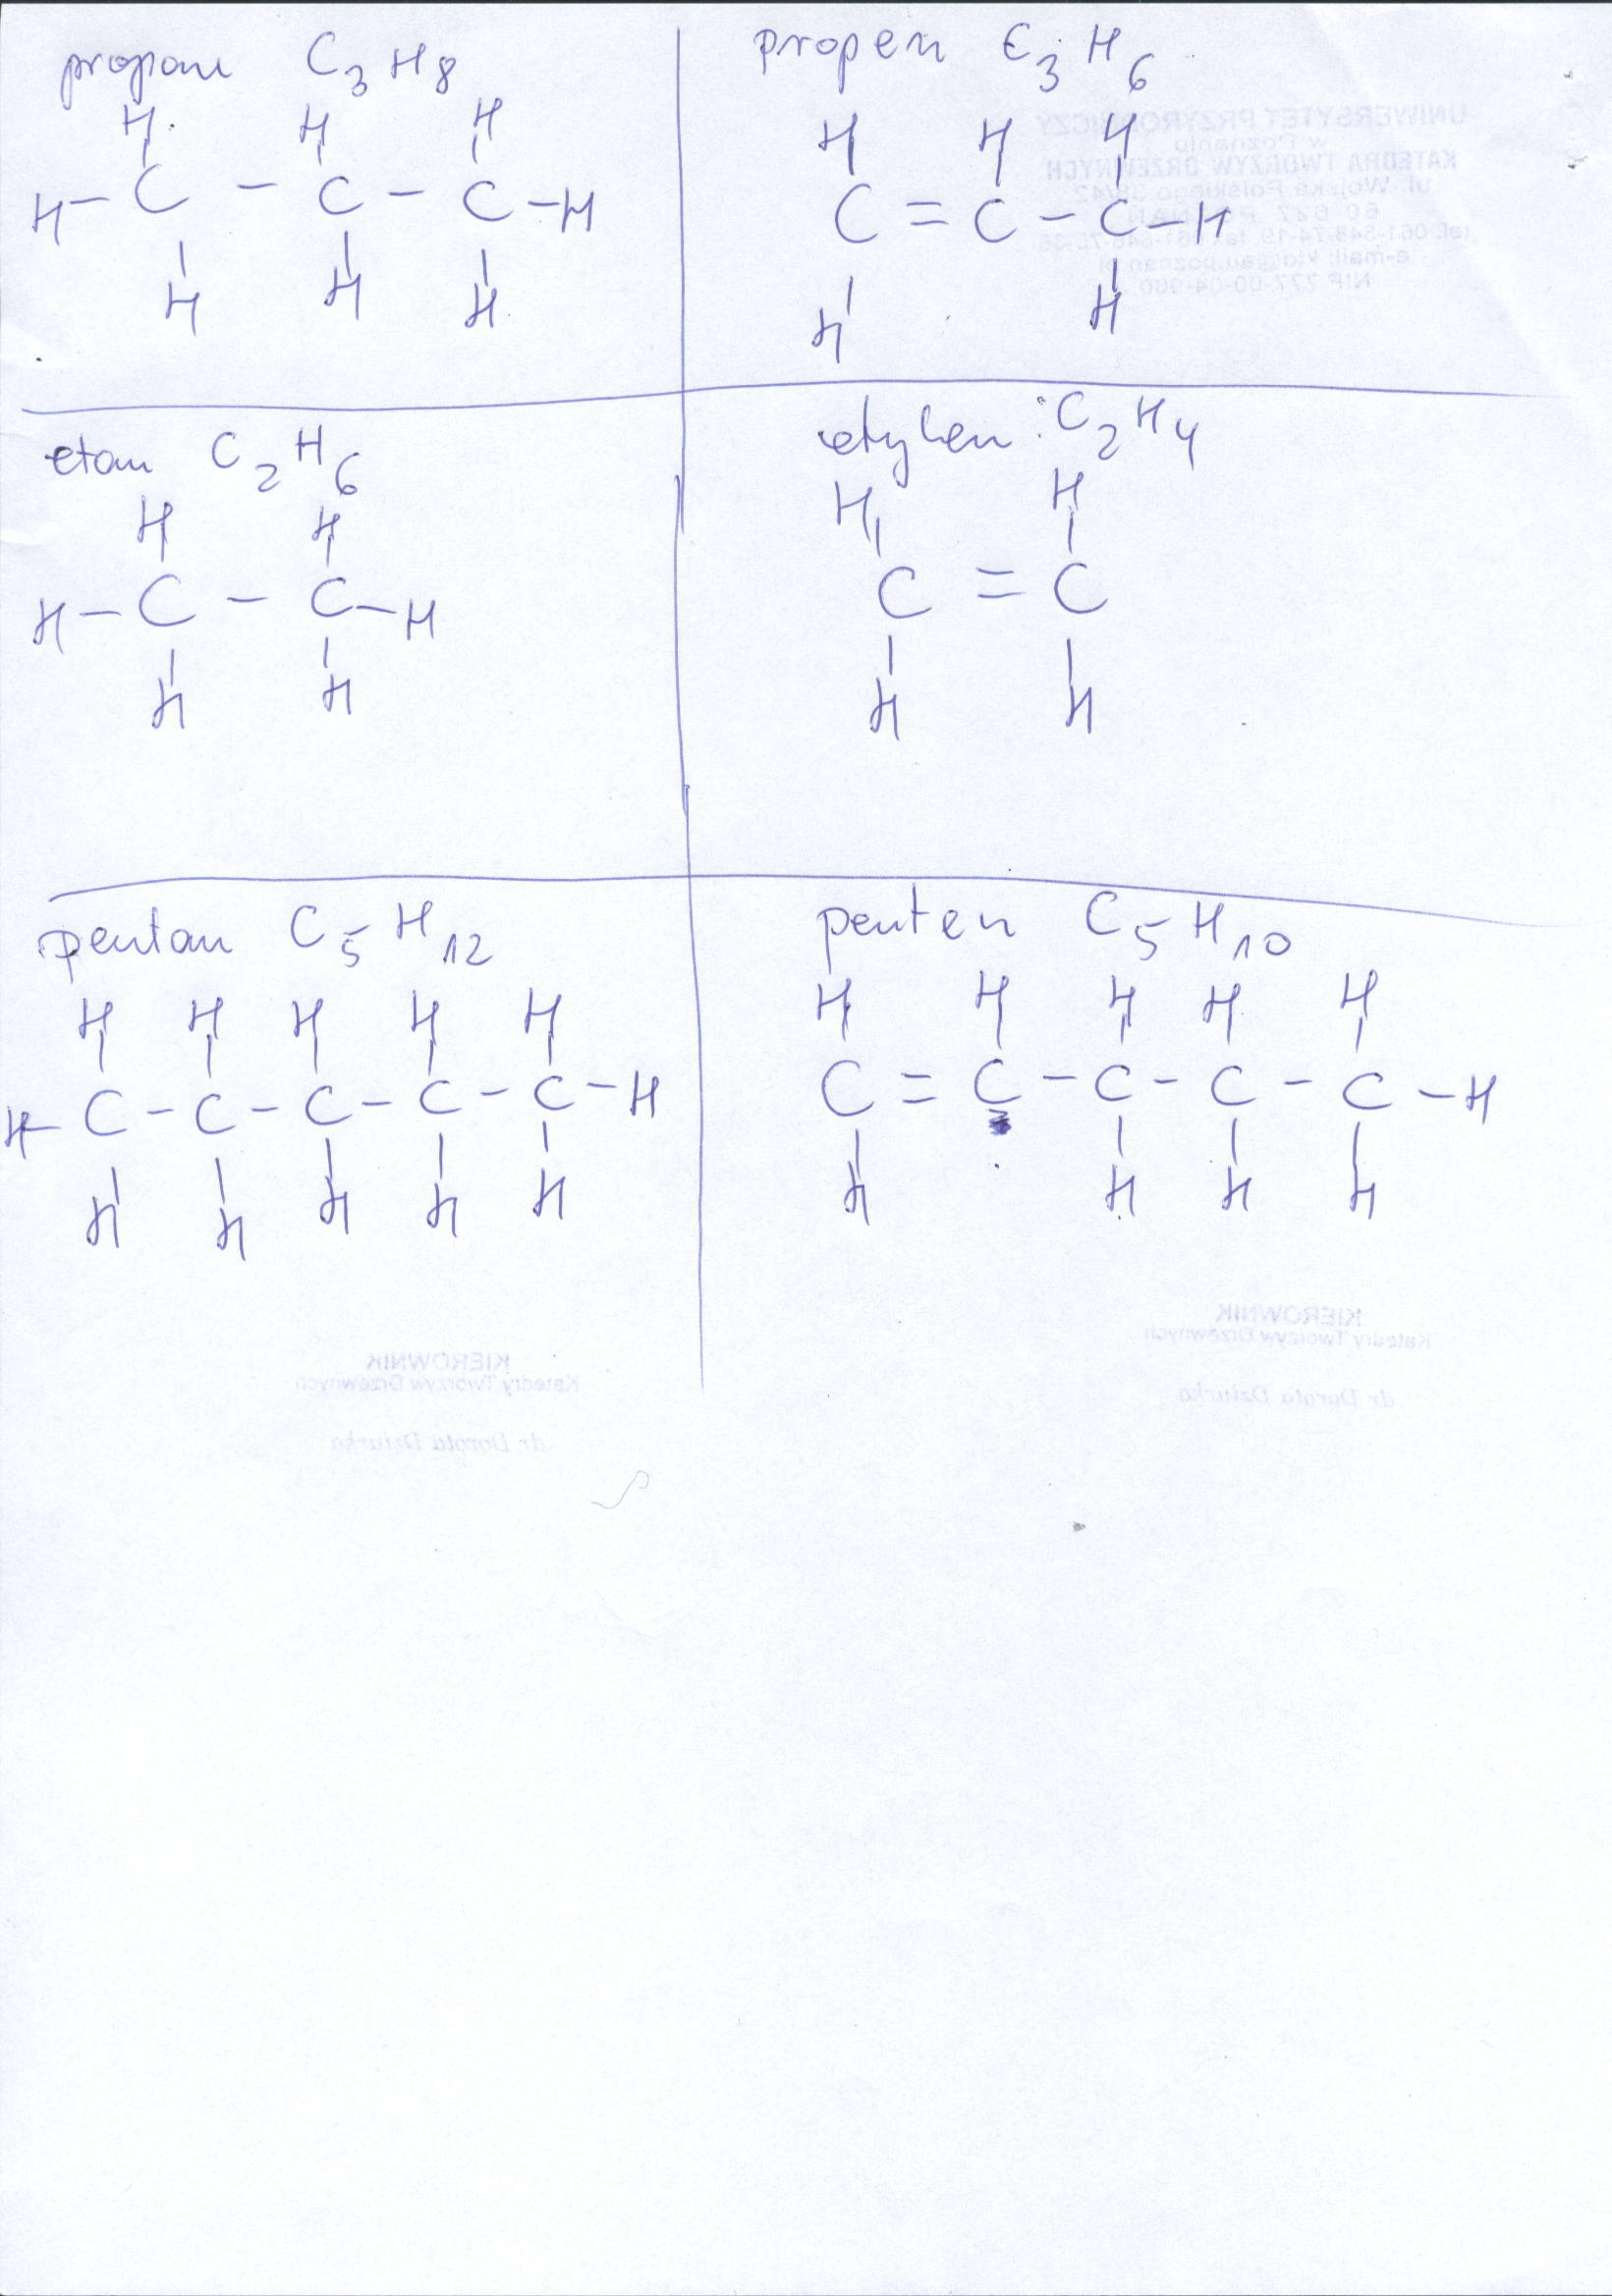 propan C3H8
H H H
H-C-C-C-H
H H H
propen C3H6
H H H
C=C-C-H
H H
etan C2H6
H H
H-C-C-H
H H
etylen: C2H4
H H
C=C
H H
pentan C5H12
H H H H H
H-C-C-C-C-C-H
H H H H H
penten C5H10
H H H H H
C=C-C-C-C-H
H H H H
UNIWERSYTET PRZYRODNICZY
w Poznaniu
KATEDRA TWORZYW DRZEWNYCH
ul. Wojska Polskiego
KIEROWNIK
Katedry Tworzyw Drzewnych
dr Dorota Dziurka
KIEROWNIK
Katedry Tworzyw Drzewnych
dr Dorota Dziurka